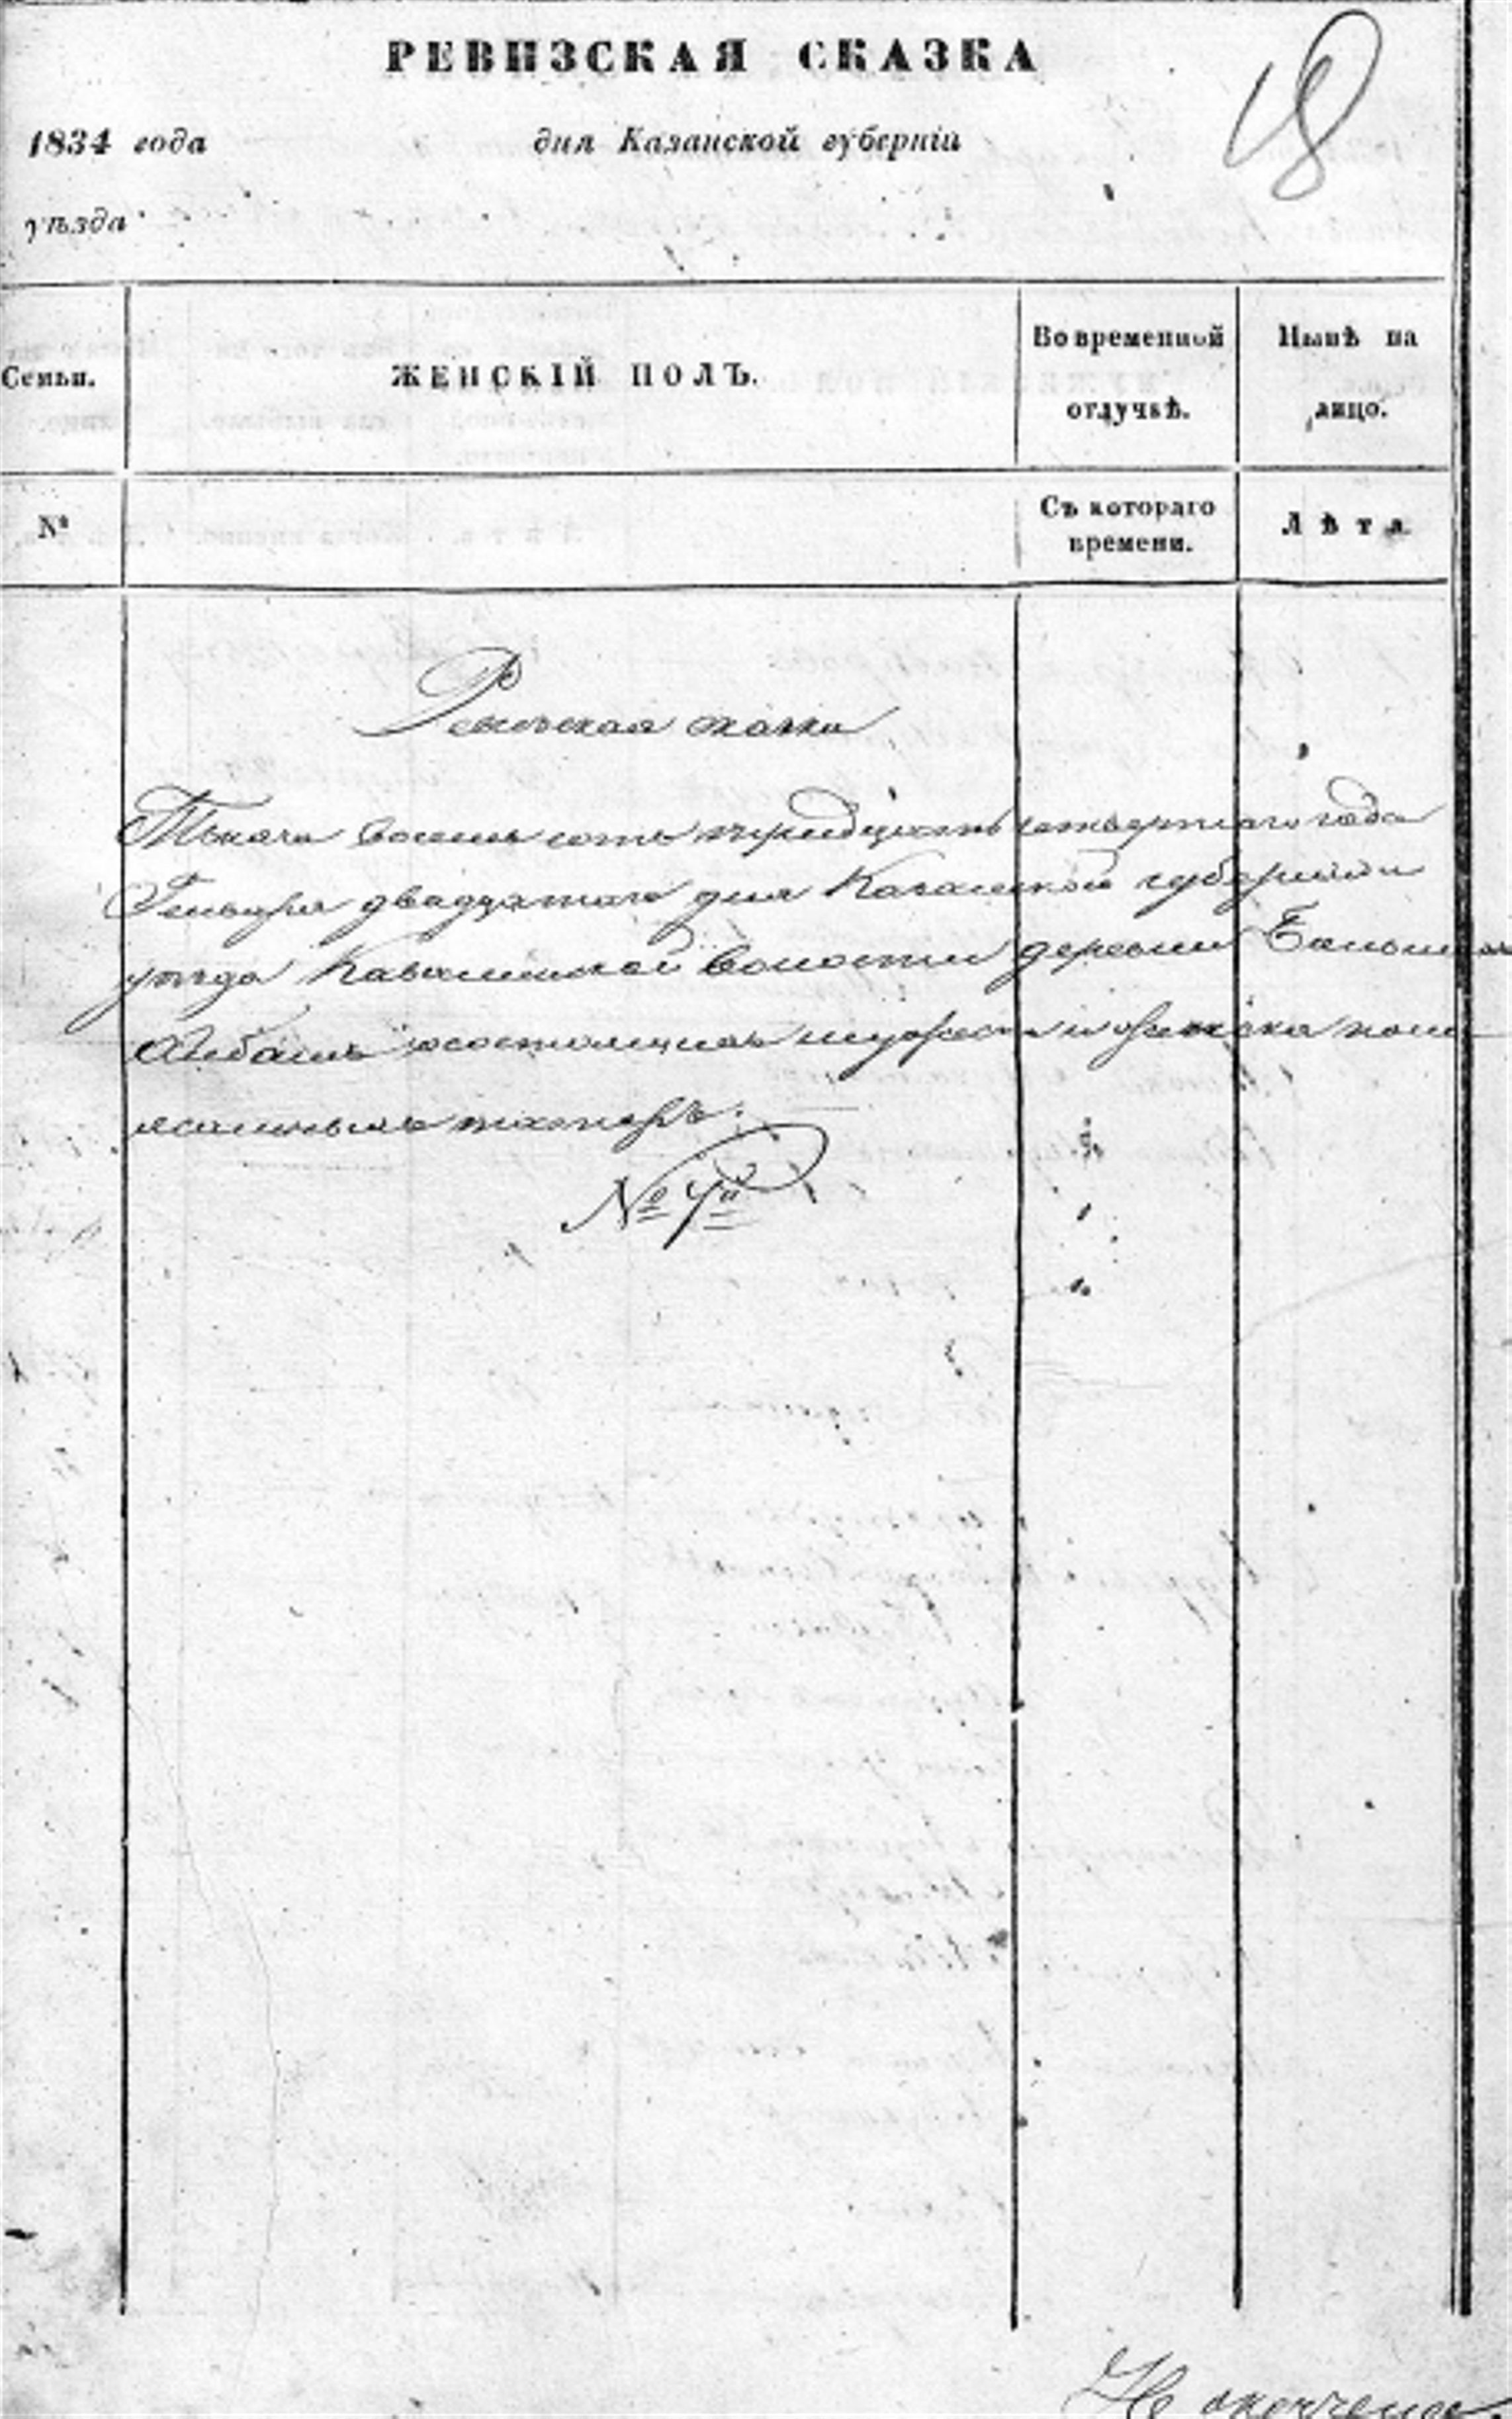 РЕВИЗСКАЯ СКАЗКА
18
1834 года дня Казанской губерніи
уѣзда
Семьи.
ЖЕНСКІЙ ПОЛЪ.
Во временной отлучкѣ.
Нынѣ на лицо.
№
Съ котораго времени.
Лѣта
Ревизская сказка
Тысяча восемь сотъ тридцать четвертаго года
Генваря двадцатаго дня Казанской губерніи
уѣзда волости деревни
состоящихъ мужеска и женска пола
ясашныхъ татаръ.
№ 4й